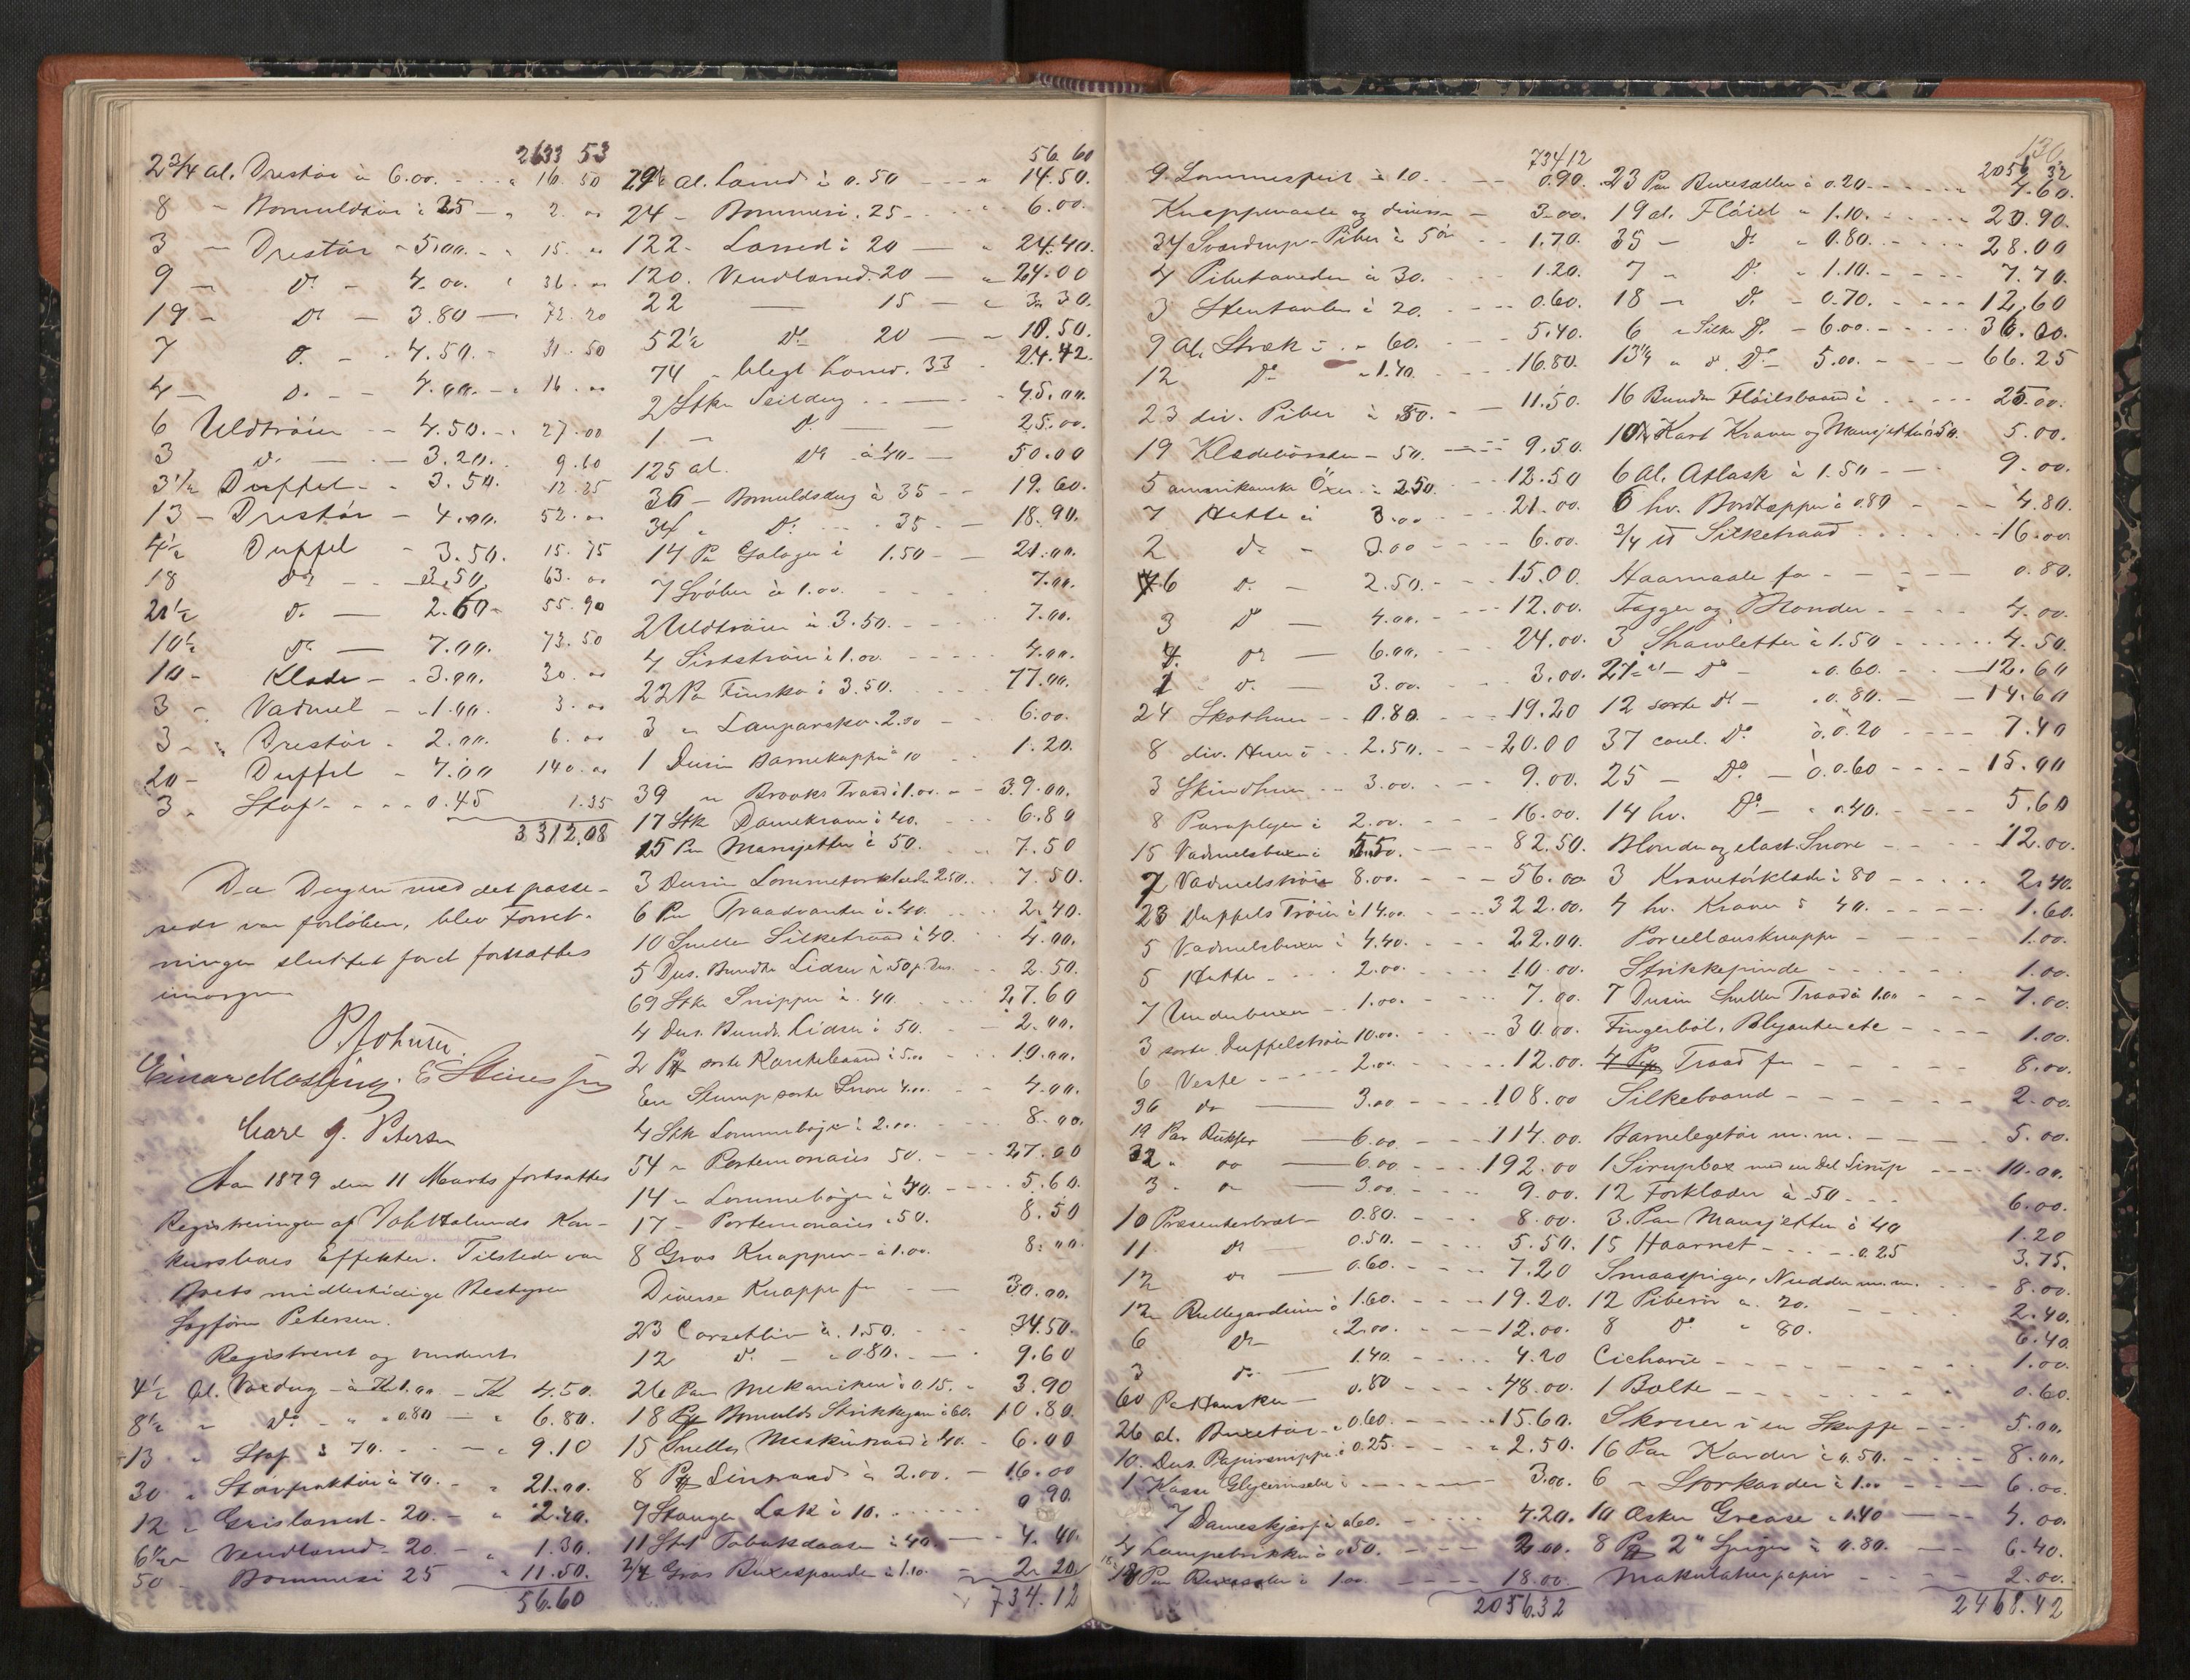 2633 53
2 3/4 al. Drestøi a 6.00. - - " 16. 50
8 - Bomuldstøi à 25 - " 2. "
3 - Drestøi - 5.00. - " 15. "
9 - Do - 4.00. " 36. "
19 - Do - 3.80 - 72. 20
7 Do - 4.50. - 31. 50
4 - Do - - 4.00. - " 16. "
6 Uldtrøier - 4.50. - " 27.00
3 Do - - 3.20. 9.60
3 1/2 Duffel - - 3.50. 12.25
13 - Drestøi - 4.00. 52. "
4 1/2 Duffel - 3.50. 15. 75
18 Do - - 3.50. 63. "
21 1/2 Do - 2.60 - 55.90
10 1/2 Do - 7.00. 73.50
10 - Klæde - - 3.00. 30. "
3 - Vadmel - - 1.00. 3. "
3 - " Drestøi - 2.00. 6. "
20 - Duffel - 7.00 140. "
3 " Stof - - - 0.45 1.35
3312,08
Da Dagen med det passe-
rede var forløben, blev Forret-
ningen sluttet for at fortsættes
imorgen
P Johnsen.
Einar Mosling. E Steines jun
Carl J. Petersen
Aar 1879 den 11 Marts fortsattes
Registreringen af Joh Halunds Kon-
kursboes Effekter. Tilstede var
Boets midlertidige Bestyrer
Sagfører Petersen.
Registreret og vurderet:
4 1/2 al. Voxdug - à Kr 1.00 - Kr 4.50.
8 1/2 " Do - " " 0.80 - " 6.80.
13 " Stof à 70. - - - " 9.10
30 " à 70. - " 21.00.
12 " Graalærred - 20. - " 2.40.
6 1/2 " Vendlærred - 20. - " 1.30.
50 - Bommesi 25 " 11.50.
56.60
56. 60
29 al. Lærred à 0.50 - - " 14.50.
24 - Bommesi. 25 - - - " 6.00.
122 - Lærred à 20 - " 24.40.
120. Vendlærred. 20 - " 24.00
22 - 15 - " 3.30.
52 1/2 Do 20 - - 10.50.
74 - blegt Lærred. 33 - 24.42.
2 Stkr Seildug - - - 45.00.
1 - Do - - 25.00.
125 al. Do à 40. - 50.00
36 - Bomuldsdug à 35 - - 19.60.
34 " Do - - - 35 - - 18.90.
14 Par Galoger à 1.50 - - 21.00.
7 à 1.00. - - 7.00.
2 Uldtrøier à 3.50. - - - 7.00.
4 à 1.00. - - - - 4.00.
22 Par Finsko à 3.50. - - - 77.00.
3 " Lauparsko - 2.00 - - 6.00.
1 Dusin Barnekapper 10 - - 1.20.
39 " Brooks Traad à 1.00. - - 39.00.
17 Stk Damekraver à 40. - - 6.80
15 Par Mansjetter à 50. - - 7.50
3 Dusin Lommetørklæder 2.50. - 7.50.
6 Par Traadvanter à 40. - - - 2.40.
10 Sneller Silketraad à 40. - - 4.00.
5 Dus. Bundter Lidser à 50 p. Dus. - - 2.50.
69 Stkr Snipper à 40. - - - 27.60
4 Dus. Bundt. Lidser à 50. - - 2.00.
2 sorte Kantebaand à 5.00 - - 10.00.
En Stump sorte Snore 4.00. - - 4.00.
4 Stk Lommebøger à 2.00. - - - 8.00.
54 " Portemonaier 50. - - - 27.00
14 " Lommebøger à 40. - - - 5.60.
17 - Portemonaier " 50. 8.50
8 Gros Knapper - à 1.00. 8.00.
Diverse Knapper for - - 30.00.
23 Corsetliv à 1.50. - - - 34.50.
12 Do - - 0.80. - - 9.60
26 Par Mekaniker à 0.15. - 3.90
18 Bomulds Strikkegarn à 60. 10.80.
15 Sneller Maskintraad à 40. - 6.00
8 à 2.00. - 16.00
9 Stanger Lak à 10. - - - - 0.90.
11 Stk Tobaksdaaser à 40 - 4.40.
2/4 Gros Buxespænder à 1.10. - 2.20
734.12
130
734 12
9. à 10. - - 0.90.
Knappenaale og diverse - 3.00.
34 Sværdrup - Piber à 5 ør - - 1.70.
4 à 30. - - 1.20.
3 Stentavler à 20. - - 0.60.
9 Al. Stræk à - " 60. - - 5.40.
12 Do " 1.40. - - 16.80.
23 div. Piber à 50. - - 11.50.
19 Klædebørster - 50. - - - 9.50
5 amerikanske Öxer à 2.50. - - 12.50
7 Hatte à 3.00 - - 21.00.
2 do - 3.00 - - - 6.00.
6 Do - 2.50. - - - 15.00
3 Do - 4.00. - - - 12.00.
4 Do - 6.00. - - 24.00.
1 Do - 3.00. - - 3.00.
24 Skothuer - - 0.80. - - - 19.20
8 div. Huer à - - 2.50. - - - 20.00
3 Skindhuer - - 3.00. - - 9.00.
8 Paraplyer à 2.00. - - - 16.00.
15 Vadmelsbuxer à 5.50. - - 82.50.
7 Vadmelstrøier 8.00. - - - 56.00
23 Duffels Trøier à 14.00. - - 322.00.
5 Vadmelsbuxer à 4.40. - - - 22.00.
5 Hatte - - - 2.00. - - - 10.00.
7 Underbuxer - - 1.00. - - - 7.00.
3 sorte Duffelstrøier 10.00. - - - 30.00.
6 Veste - - - - 2.00. - - - - 12.00.
36 do - 3.00 - - - 108.00
19 Par Buxer - 6.00 - - - 114.00.
32 " Do - 6.00 - - - 192.00
3 - Do - 3.00. - - - 9.00.
10 Præsenterbræt - 0.80. - - - 8.00.
11 do - 0.50. - - - 5.50.
12 do - 0.60. - - - 7.20
12 Rullegardiner à 1.60. - - - 19.20.
6 Do - 2.00. - - - 12.00.
3 Do - 1.40. - - - 4.20
60 Par Hansker - 0.80 - - - 48.00.
26 al. Buxetøi - " 0.60. - - - 15.60.
10. Dus. Papirsnipper à 0.25. - - - 2.50.
1 Kasse Glycerinsæbe à - - - - 3.00.
7 Dameskjærf à 0.60. - - - 4.20.
4 Lampebrikker à 0.50. - - - 2.00.
18 Par Buxeseler à 1.00. - - - 18.00.
2056.32
2056 32
23 Par Buxeseller à 0.20. - - - - 4.60.
19 al. Fløiel " 1.10. - - - - 20.90.
35 - Do " 0.80. - - - 28.00
7 - Do " 1.10. - - - 7.70.
18 - Do - 0.70. - - - 12.60
6 " Silke Do - 6.00. - - - 36.00.
13 1/4 " " Do - 5.00. - - - 66.25
16 Bundter Fløilsbaand à - - - 25.00.
10 Kart Kraver og Mansjetter à 50. 5.00.
6 Al. Atlask à 1.50 - - 9.00.
6 hv. Bordtæpper à 0.80 - - 4.80.
3/4 ℔ Silketraad - - - - 16.00
Haarnaale for - - - - 0.80.
Tagger og Blonder - - - 4.00.
3 Shawletter à 1.50 - - - - 4.50.
21 " Do - " 0.60. - - 12.60
12 sorte Do - " 0.80. - - 14.60
37 coul. Do à 0.20 - - - - 7.40
25 - Do - à 0.60 - - - - 15.00
14 hv. Do - " 0.40. - - - - 5.60
Blonder og elast. Snore - - - - 12.00.
3 Kravetørklæder à 80 - - - - 2.40.
4 hv. Kraver à 40. - - - - 1.60.
Porcellænsknapper - - - 1.00.
Strikkepinde - - - - - 1.00.
7 Dusin Sneller Traad à 1.00 - - 7.00.
Fingerbøl, Blyanter etc - - - 1.00.
Traad for - - - - 8.00.
Silkebaand - - - - - - 2.00.
Barnelegetøi m.m. - - - 5.00.
1 Sirupbox med en Del Sirup - - - 10.00.
12 Forklæder à - 50 - - - 6.00.
3. Par Mansjetter à 40 1.20
15 Haarnet - - - - 0.25 3.75.
Smaaspiger, Nudder m.m. - - 8.00.
12 Piberør a. 20. - - - 2.40.
8 Do " 80. - - 6.40.
Cichorie - - - - - - 1.00.
1 Bolte - - - - - - 0.60.
Skruer i en Skuffe - - 5.00.
16 Par Karder à 0.50. - - - 8.00.
6 " Storkarder à 1.00 - - - 6.00.
10 Æsker Grease " 1.40 - - 4.00.
8 2" Spiger à 0.80. - - 6.40.
Makulaturpapir - - - - 2.00.
2468.42